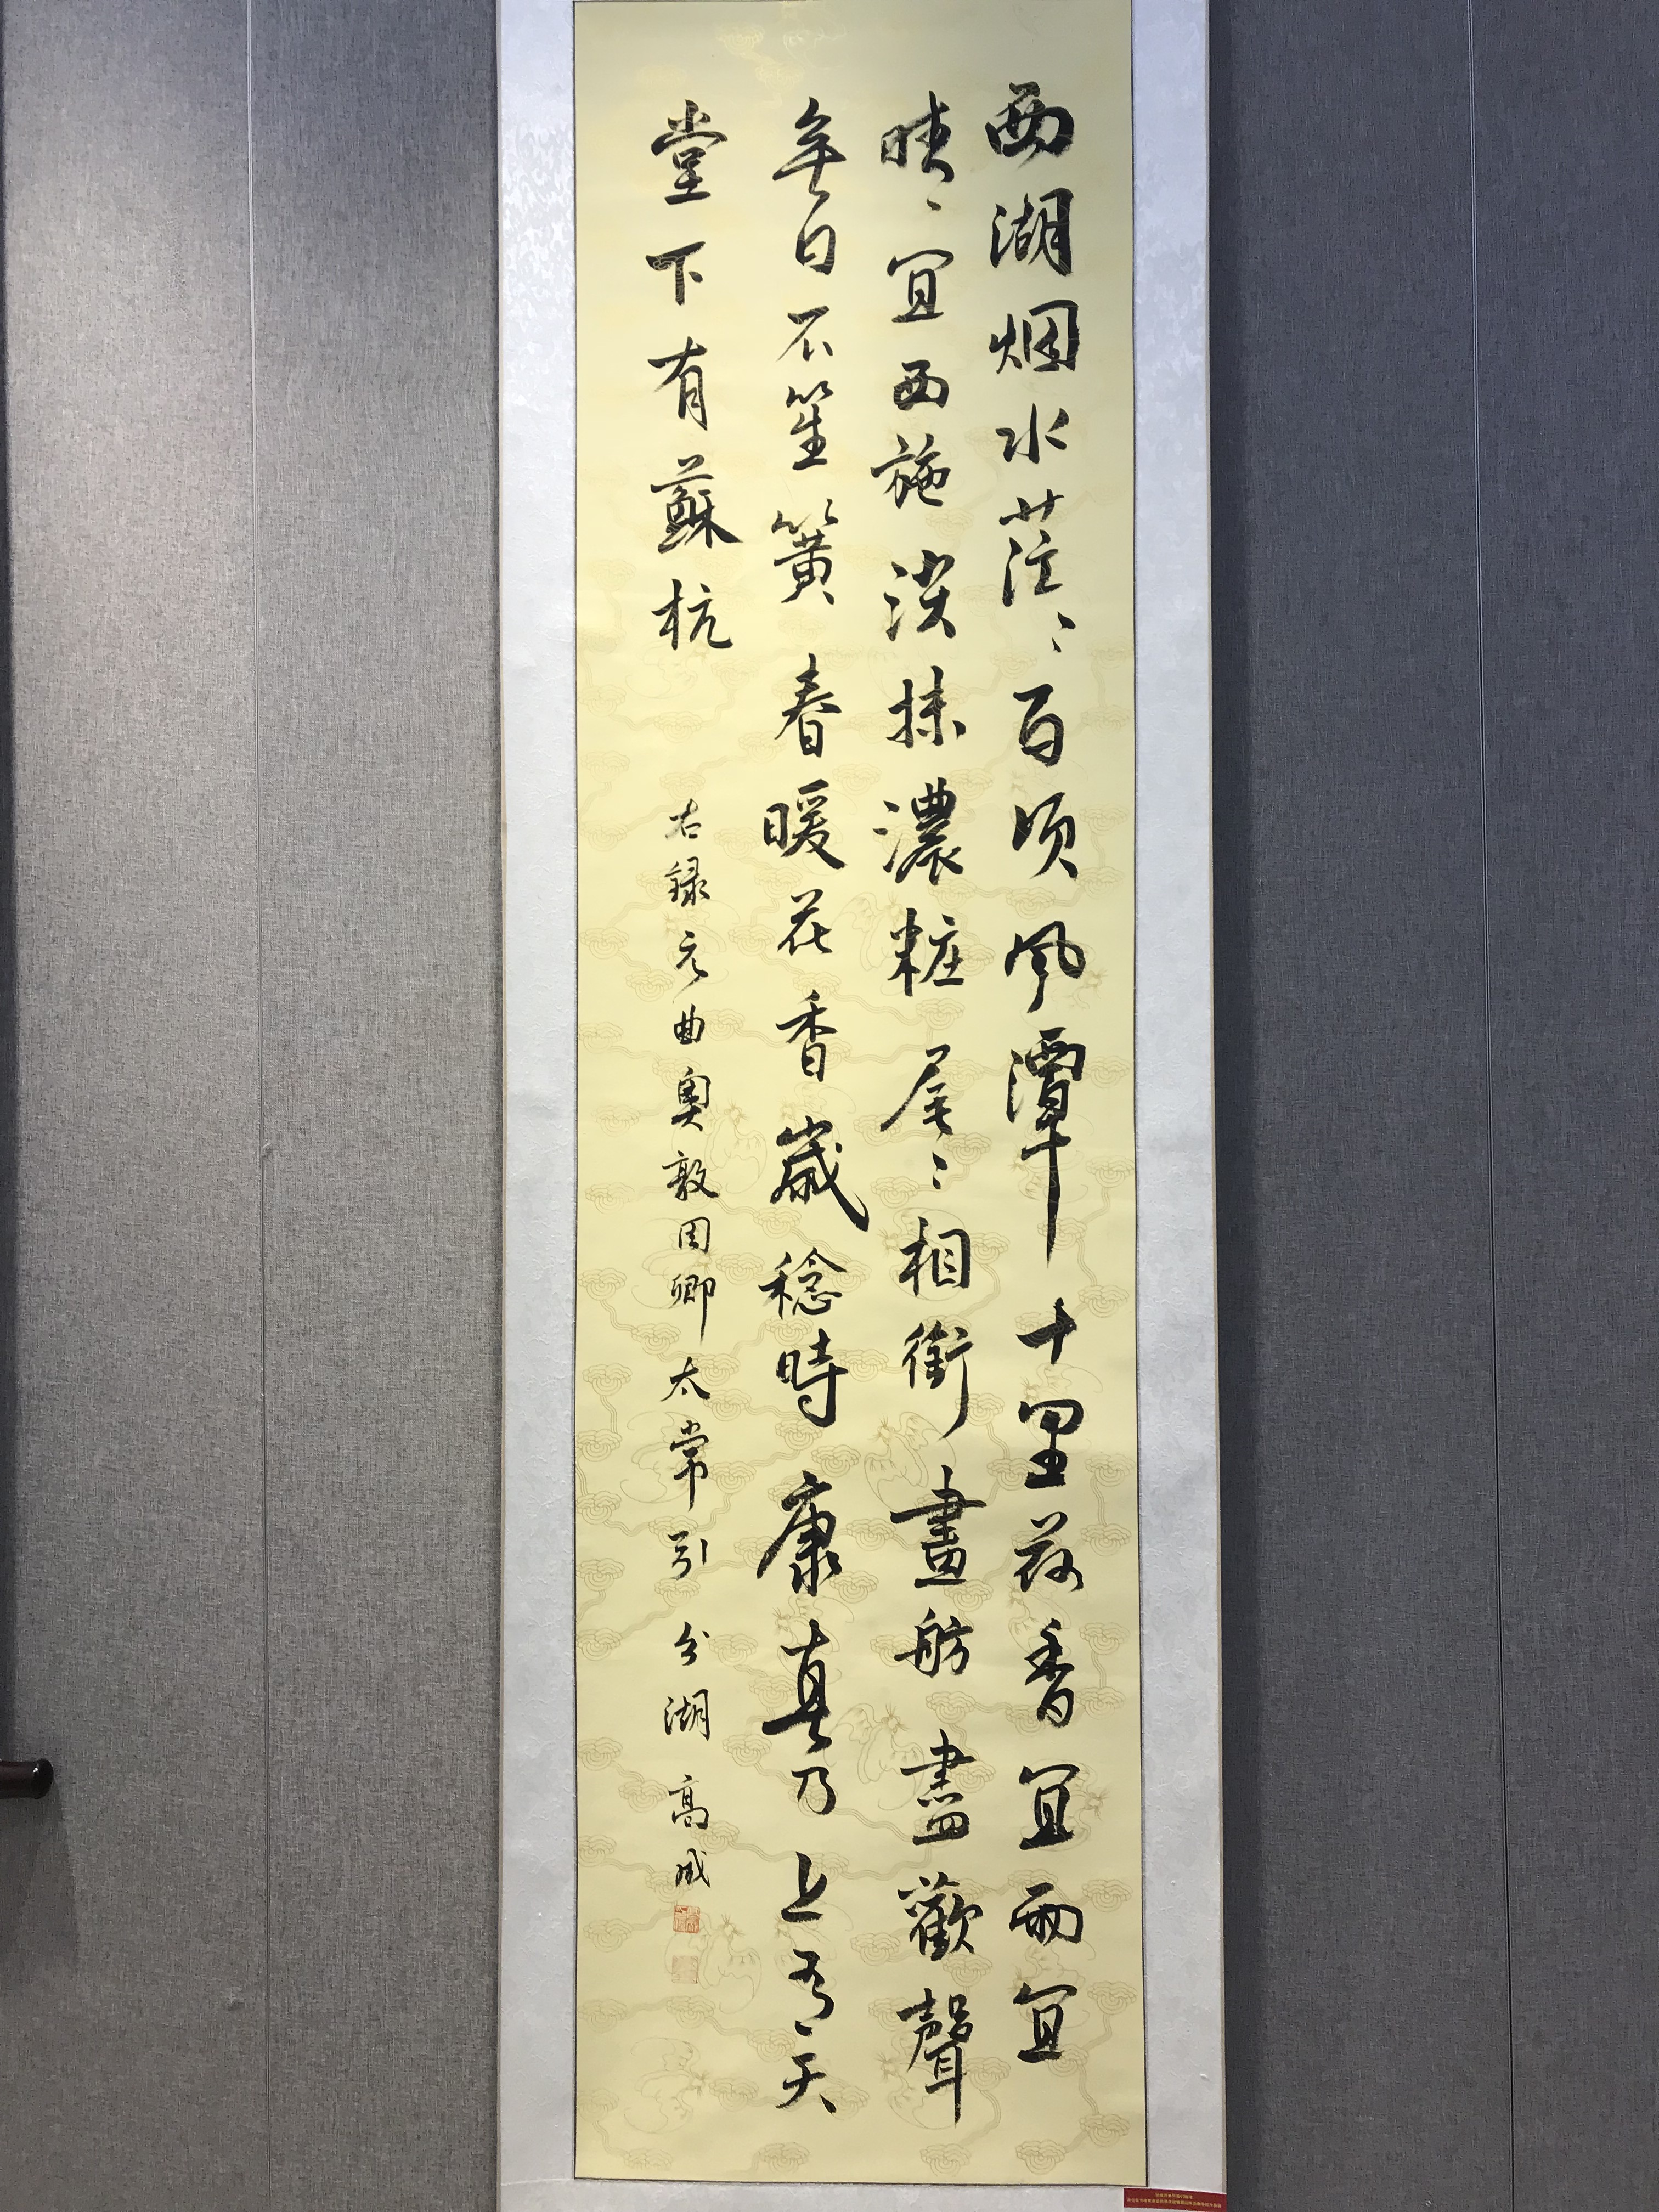 西湖烟水茫々百顷风潭十里荷香宜雨宜
晴々宜西施淡抹濃粧尾々相銜畫舫盡歡聲
無日不笙簧春暖花香歲稔時康真乃上有天
堂下有蘇杭
右録元曲奥敦周卿太常引 分湖 高成